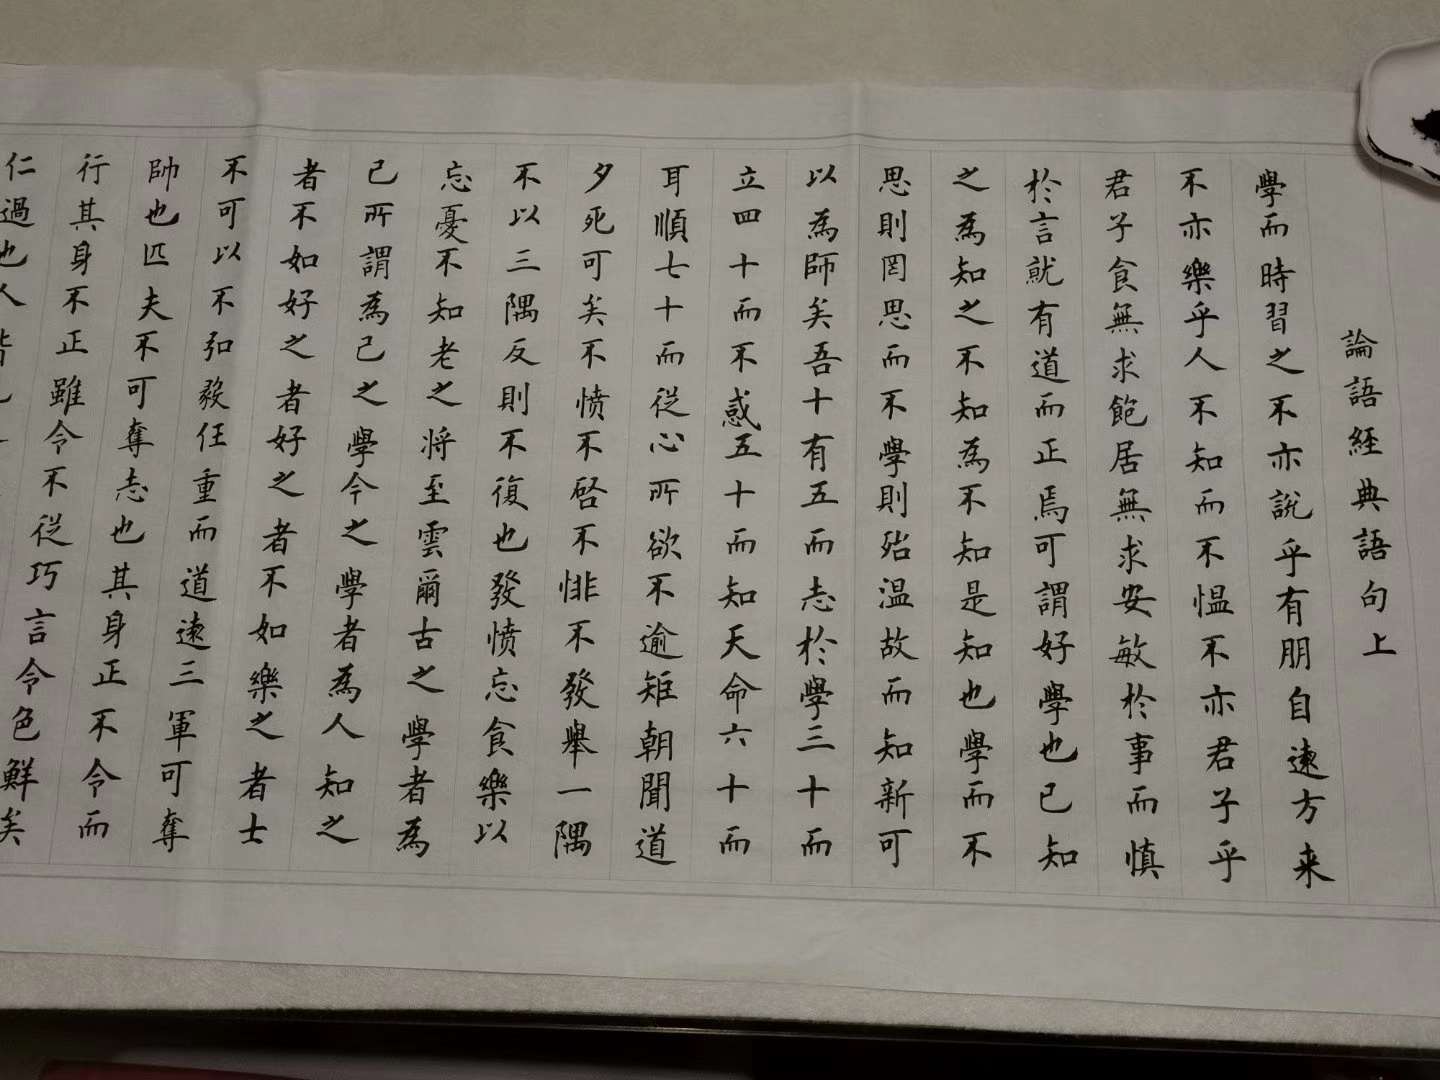 論語經典語句上
學而時習之不亦說乎有朋自遠方来
不亦樂乎人不知而不愠不亦君子乎
君子食無求飽居無求安敏於事而慎
於言就有道而正焉可謂好學也已知
之為知之不知為不知是知也學而不
思則罔思而不學則殆温故而知新可
以為師矣吾十有五而志於學三十而
立四十而不惑五十而知天命六十而
耳順七十而從心所欲不逾矩朝聞道
夕死可矣不愤不啓不悱不發舉一隅
不以三隅反則不復也發愤忘食樂以
忘憂不知老之将至雲爾古之學者為
己所謂為己之學今之學者為人知之
者不如好之者好之者不如樂之者士
不可以不弘毅任重而道遠三軍可奪
帥也匹夫不可奪志也其身正不令而
行其身不正雖令不從巧言令色鮮矣
仁過也人皆